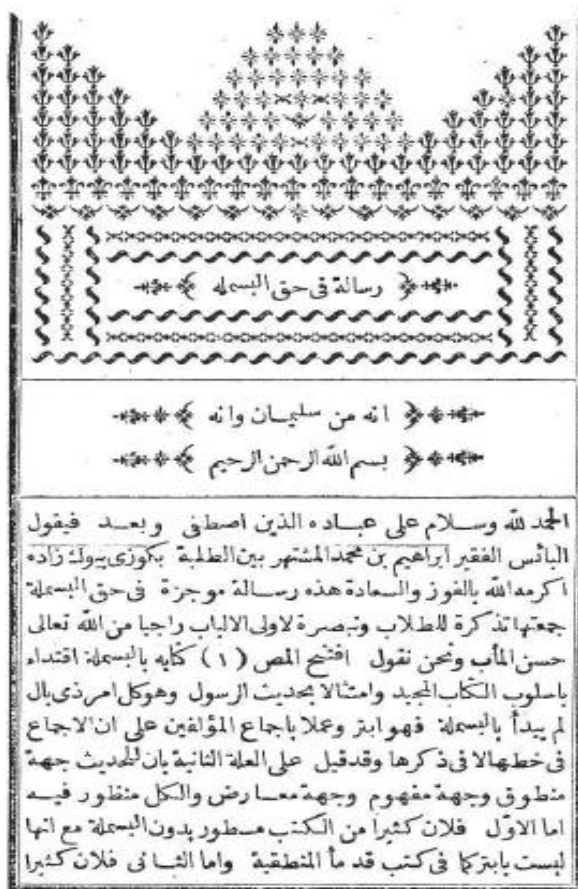 رسالة فى حق البسمله
انه من سليمان وانه
بسم الله الرحمن الرحيم
الحمد لله وسلام على عباده الذين اصطفى وبعد فيقول
البائس الفقير ابراهيم بن محمد المشتهر بين الطلبة بكوزى بيوك زاده
اكرمه الله بالفوز والسعادة هذه رسالة موجزة فى حق البسملة
جمعتها تذكرة للطلاب وتبصرة لاولى الالباب راجيا من الله تعالى
حسن المأب ونحن نقول افتتح المص (١) كتابه بالبسملة اقتداء
باسلوب الكتاب المجيد وامتثالا بحديث الرسول وهو كل امر ذى بال
لم يبدأ بالبسملة فهو ابتر وعملا باجماع المؤلفين على ان الاجماع
فى خطها لا فى ذكرها وقد قيل على العلة الثانية بان للحديث جهة
منطوق وجهة مفهوم وجهة معارض والكل منظور فيه
اما الاول فلان كثيرا من الكتب مسطور بدون البسملة مع انها
ليست بابتر كما فى كتب قدمأ المنطقية واما الثانى فلان كثيرا